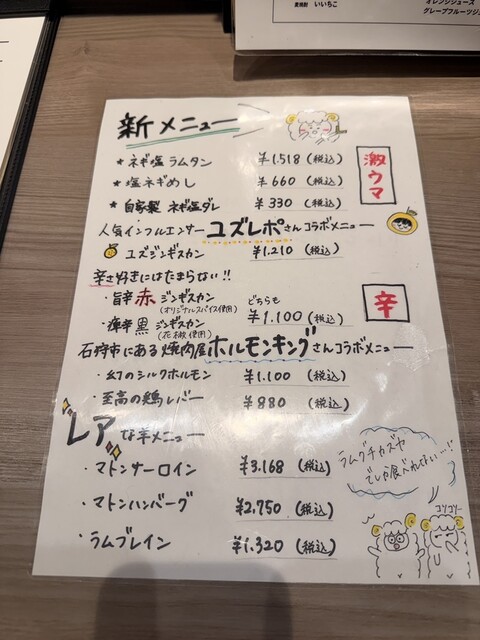 麦焼酎 いいちこ
オレンジジュース
グレープフルーツジュ
新メニュー
★ ネギ塩ラムタン ¥1.518 (税込)
★ 塩ネギめし ¥660 (税込)
★ 自家製 ネギ塩ダレ ¥330 (税込)
激ウマ
人気インフルエンサーユズレポさんコラボメニュー
ユズジンギスカン ¥1.210 (税込)
辛さ好きにはたまらない!!
・旨辛 赤 ジンギスカン
(オリジナルスパイス使用)
どちらも ¥1.100 (税込)
・痺辛 黒 ジンギスカン
(花椒使用)
辛
石狩市にある焼肉屋ホルモンキングさんコラボメニュー
・幻のシルクホルモン ¥1.100 (税込)
・至高の鶏レバー ¥880 (税込)
レアな羊メニュー
・マトンサーロイン ¥3.168 (税込)
・マトンハンバーグ ¥2.750 (税込)
・ラムブレイン ¥1.320 (税込)
ラムグチカズヤ
でしか食べれなーい!!
コソコソ